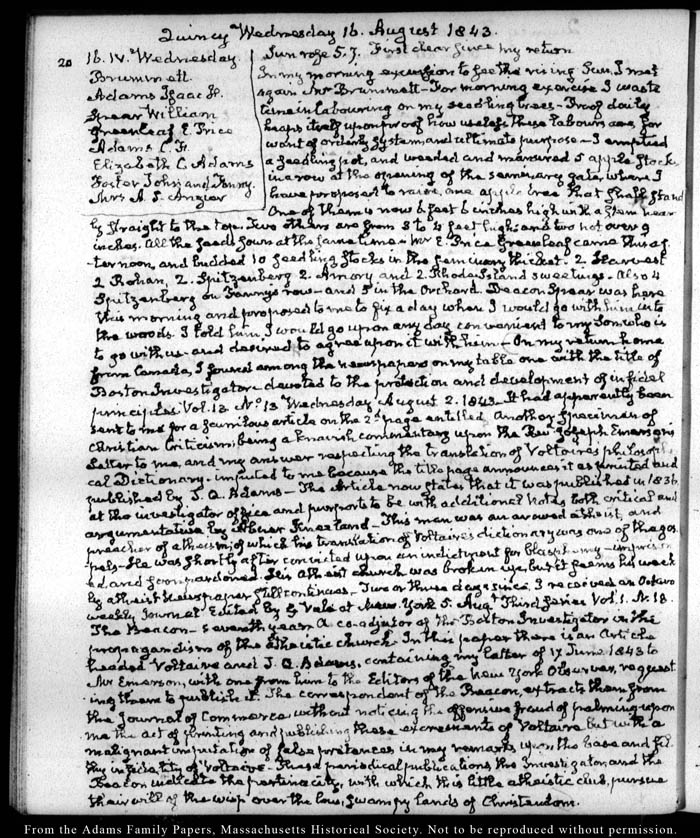 Quincy Wednesday 16. August 1843.
20
16. IV. Wednesday
Brummett
Adams Isaac H.
Spear William
Greenleaf E. Price
Adams C. F.
Elizabeth C. Adams
Foster John and Fanny.
Mrs A. S. Angier
Sun rose 5.7. First clear since my return
In my morning excursion to see the rising Sun, I met
again Mr Brummett — For morning exercise I waste
time in labouring on my seedling trees — Proof daily
heaps itself upon proof how useless these labours are for
want of orderly system and ultimate purpose — I emptied
a seedling pot, and weeded and manured 5 apple Stocks
in a row at the opening of the seminary gate, where I
have proposed to raise, one apple tree that shall stand
One of them is now 6 feet 6 inches high with a stem near
ly straight to the top. Two others are from 3 to 4 feet high and two not over 9
inches. All the seeds sown at the same time — Mr E. Price Greenleaf came this af-
ternoon, and budded 10 seedling stocks in the seminary thicket. 2 Harvest
2 Rohan, 2. Spitzenberg 2. Amory and 2 Rhode Island sweetings — Also 4
Spitzenberg on Fanny's row — and 5 in the Orchard. Deacon Spear was here
this morning and proposed to me to fix a day when I would go with him into
the woods. I told him I would go upon any day convenient to my Son who is
to go with us — and desired to agree upon it with him — On my return home
from Canada, I found among the newspapers on my table one with the title of
Boston Investigator devoted to the protection and development of infidel
principles Vol. 13 No. 13 Wednesday August 2. 1843 — It had apparently been
sent to me for a scurrilous article on the 2d page entitled Another Specimen of
Christian Criticism, being a knavish commentary upon the Revd Joseph Emerson's
Letter to me, and my answer respecting the translation of Voltaire's philosophi-
cal Dictionary — imputed to me because the title page announces it as printed and
published by J. Q. Adams — The Article now states that it was published in 1836.
at the investigator office and purports to be with additional Notes both critical and
argumentative by Abner Kneeland — This man was an avowed atheist, and
preacher of atheism, of which his translation of Voltaire's dictionary was one of the gos-
pels — He was shortly after convicted upon an indictment for blasphemy — imprison
ed and soon pardoned. His atheist church was broken up, but it seems his week
ly atheist Newspaper still continues — Two or three days since, I received an Octavo
weekly Journal Edited by G Vale at New York 5. Augt Third series Vol. 1. N. 18.
The Beacon — seventh year. A co-adjutor of the Boston Investigator in the
propagandism of the atheistic church. In this paper there is an Article
headed Voltaire and J. Q. Adams, containing my letter of 17 June 1843 to
Mr Emerson, with one from him to the Editors of the New York Observer, request
ing them to publish it. The correspondent of the Beacon, extracts them from
the Journal of Commerce without noticing the offensive fraud of palming upon
me the act of printing and publishing these excrements of Voltaire but with a
malignant imputation of false pretences in my remarks upon the base and fil-
thy infidelity of Voltaire — These periodical publications, the Investigator, and the
Beacon indicate the pertinacity, with which this little atheistic club, pursue
their will of the wisp over the low, swampy lands of Christendom.
From the Adams Family Papers, Massachusetts Historical Society. Not to be reproduced without permission.